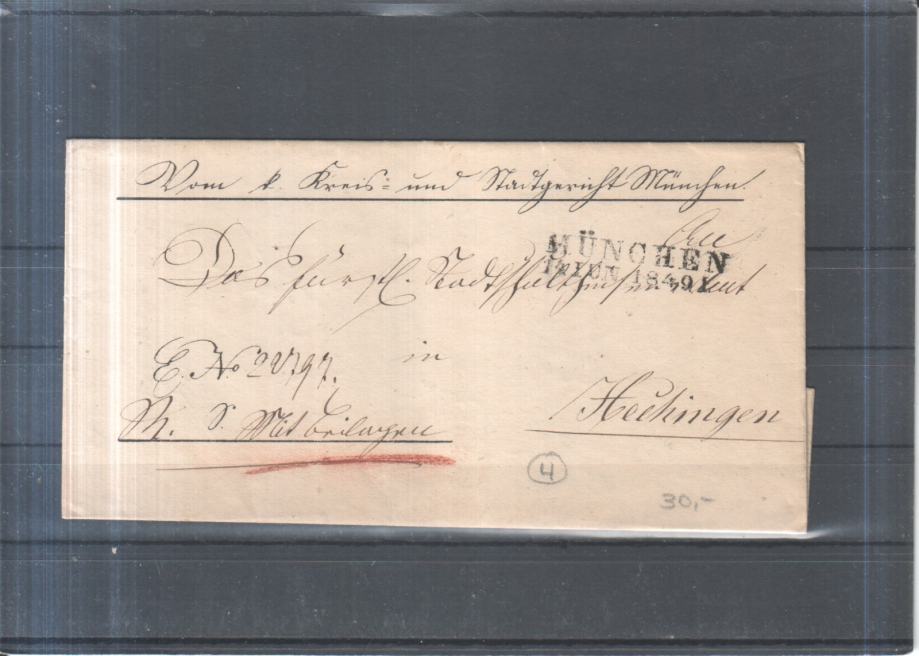 Vom k. Kreis- und Stadtgericht München.
An
MÜNCHEN
JUN. 1849
Das fürstl.
E. No 22797.
in
R. S. Mit Beilagen
Hechingen
4
30,-